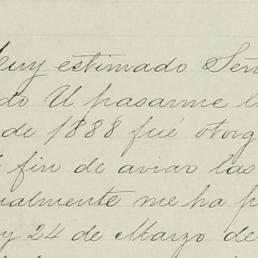 Muy estimado Señ
do U pasarme l
de 1888 fué otorg
fin de aviar las
ualmente me ha p
y 24 de Marzo de